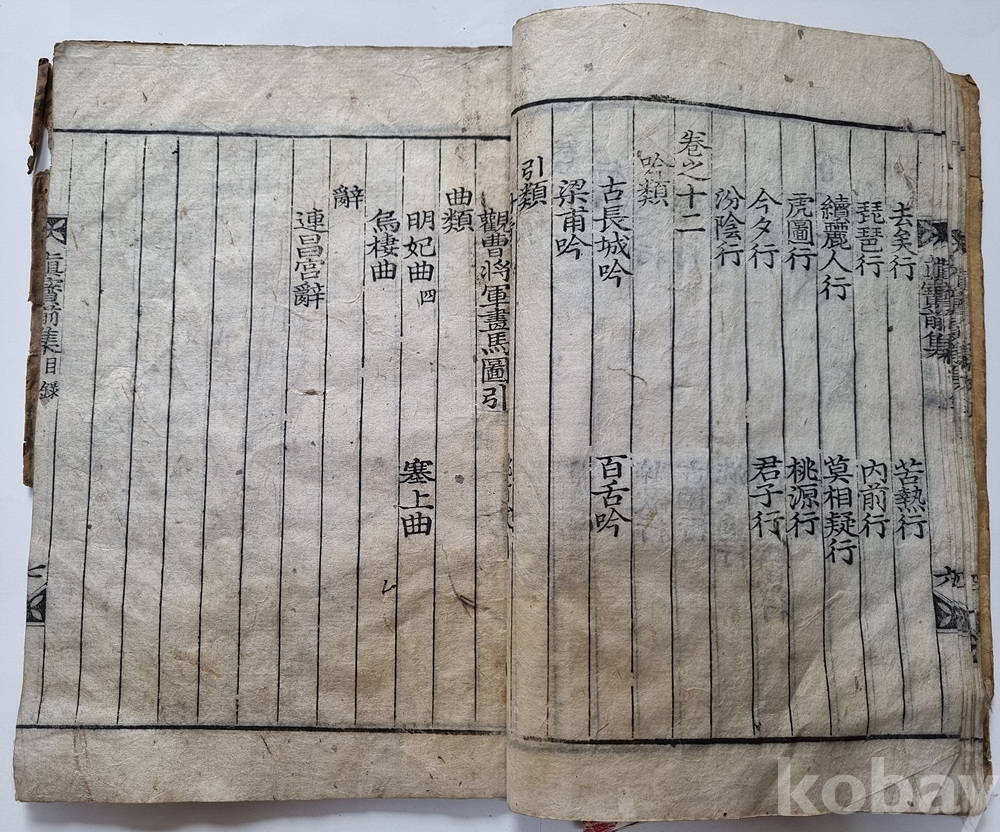 去矣行 苦熱行
琵琶行 內前行
續麗人行 莫相疑行
虎圖行 桃源行
今夕行 君子行
汾陰行
卷之十二
吟類
古長城吟 百舌吟
梁甫吟
引類
觀曹將軍畫馬圖引
曲類
明妃曲四 塞上曲
烏棲曲
辭
連昌宮辭
眞寶前集目錄
七
眞寶前集
六
kobay